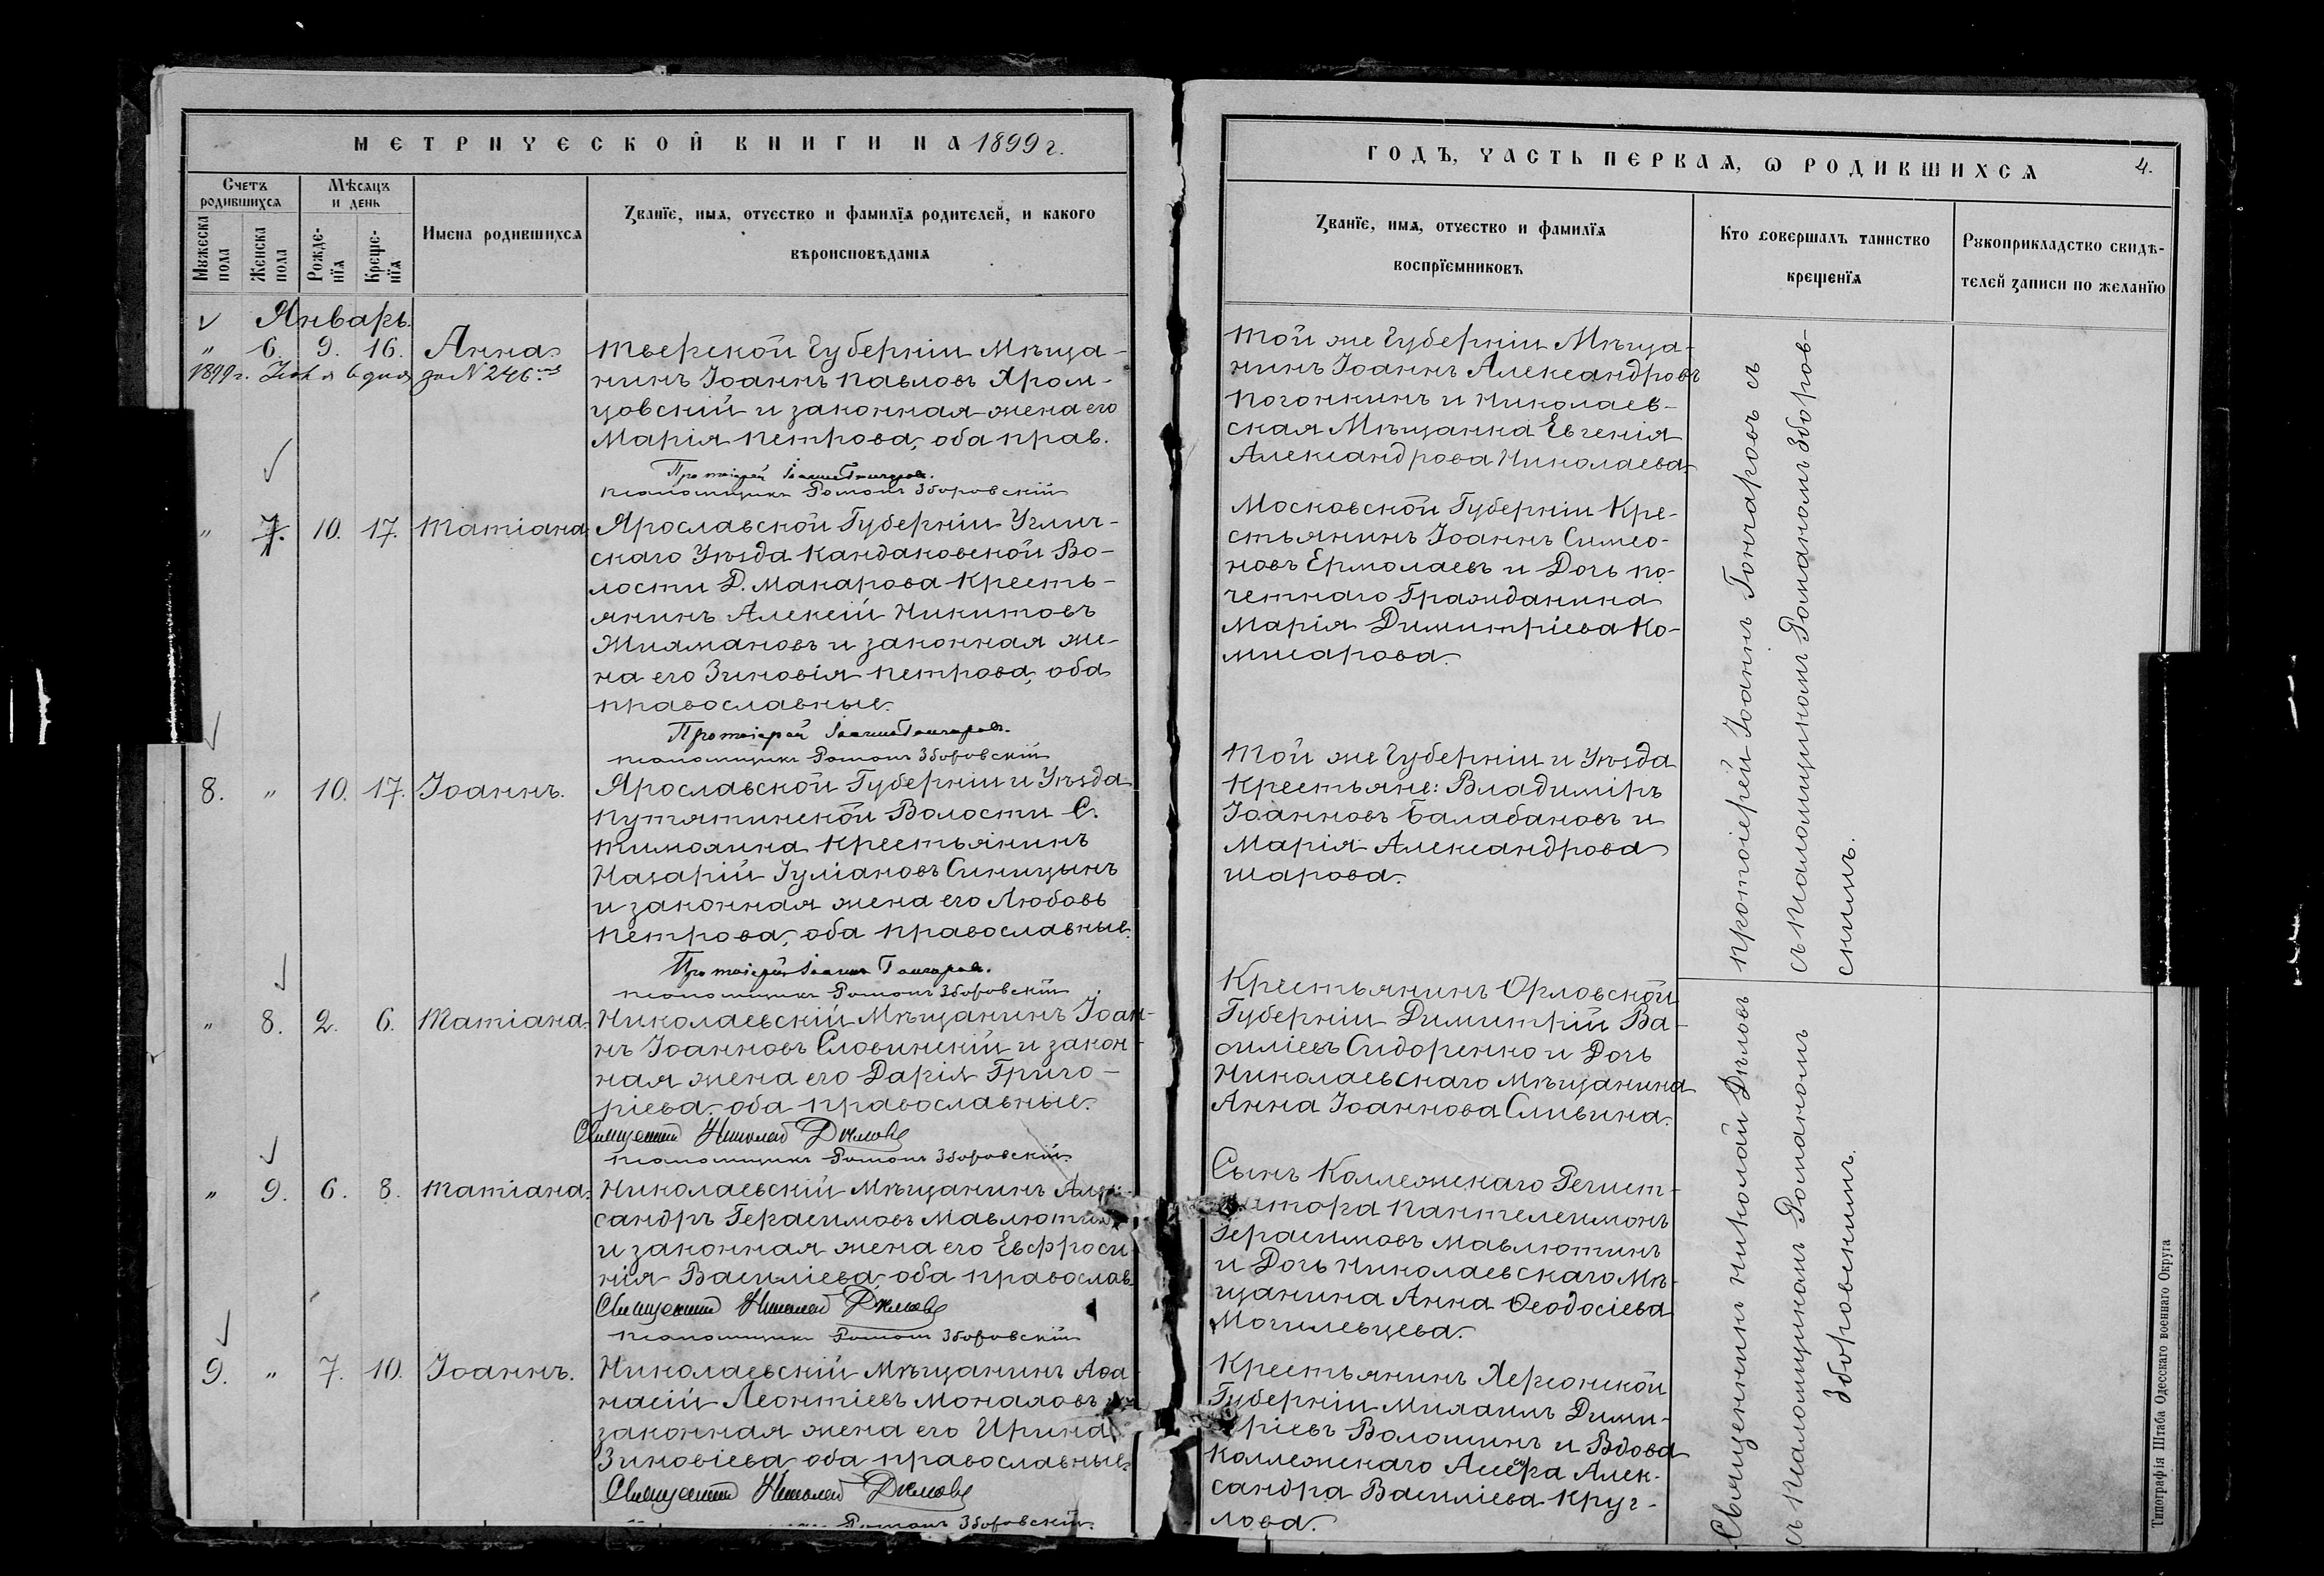 МЕТРИЧЕСКОЙ КНИГИ НА 1899 г.
Счетъ родившихся
Мѣсяцъ и день
Имена родившихся
Званїе, имя, отчество и фамилїя родителей, и какого
вѣроисповѣданїя
Мужеска пола
Женска пола
Рожде-нїя
Креще-нїя
Январь.
" 6. 9. 16. Анна
1899 г. 6 дня за № 246
Тверской Губерніи Мѣща-
нинъ Іоаннъ Павловъ Хром-
цовскій и законная жена его
Марія Петрова, оба прав.
Протоіерей Іоаннъ Гончаровъ.
Псаломщикъ Романъ Зборовскій
" 7. 10. 17. Татіана
Ярославской Губерніи Углич-
скаго Уѣзда Кандаковской Во-
лости Д. Макарова Кресть-
янинъ Алексій Никитовъ
и законная же-
на его Зиновія Петрова, оба
православные.
Протоіерей Іоаннъ Гончаровъ.
Псаломщикъ Романъ Зборовскій
8. " 10. 17. Іоаннъ.
Ярославской Губерніи и Уѣзда
Путятинской Волости С.
Тимохина Крестьянинъ
Назарій Іуліановъ Синицынъ
и законная жена его Любовь
Петрова, оба православные.
Протоіерей Іоаннъ Гончаровъ.
Псаломщикъ Романъ Зборовскій
" 8. 2. 6. Татіана.
Николаевскій Мѣщанинъ Іоан-
нъ Іоанновъ Словинскій и закон-
ная жена его Дарія Григо-
ріева, оба православные.
Священникъ Николай Дѣловъ
Псаломщикъ Романъ Зборовскій.
" 9. 6. 8. Татіана.
Николаевскій Мѣщанинъ Алек-
сандръ Герасимовъ Мавлютинъ
и законная жена его Евфроси
нія Василіева, оба православ.
Священникъ Николай Дѣловъ
Псаломщикъ Романъ Зборовскій
9. " 7. 10. Іоаннъ.
Николаевскій Мѣщанинъ Аѳа
насій Леонтіевъ Мональовъ и
законная жена его Ирина
Зиновіева оба православные.
Священникъ Николай Дѣловъ
Романъ Зборовскій.
ГОДЪ, ЧАСТЬ ПЕРВАЯ, Ѡ РОДИВШИХСЯ
4.
Званїе, имя, отчество и фамилїя
воспрїемниковъ
Кто совершалъ таинство
крещенїя
Рукоприкладство свидѣ-
телей записи по желанїю
Той же Губерніи Мѣща-
нинъ Іоаннъ Александровъ
Погонкинъ и Николаев-
ская Мѣщанка Евгенія
Александрова Николаева.
Московской Губерніи Кре-
стьянинъ Іоаннъ Симео-
новъ Ермолаевъ и Дочь по-
четнаго Гражданина
Марія Димитріева Ко-
мисарова.
Той же Губерніи и Уѣзда
Крестьяне: Владиміръ
Іоанновъ Балабановъ и
Марія Александрова
Шарова.
Протоіерей Іоаннъ Гончаровъ съ
съ Псаломщикомъ Романомъ Зборов-
скимъ.
Крестьянинъ Орловской
Губерніи Димитрій Ва-
силіевъ Сидоренко и Дочь
Николаевскаго Мѣщанина
Анна Іоаннова Сливина.
Сынъ Коллежскаго Регист-
ратора Пантелеимонъ
Герасимовъ Мавлютинъ
и Дочь Николаевскаго Мѣ-
щанина Анна Ѳеодосіева
Могилевцева.
Крестьянинъ Херсонской
Губерніи Михаилъ Дими-
тріевъ Волошинъ и Вдова
Коллежскаго Алек-
сандра Василіева Круг-
лова.
Священникъ Николай Дѣловъ
съ Псаломщикомъ Романомъ
Зборовскимъ.
Типографія Штаба Одесскаго военнаго Округа